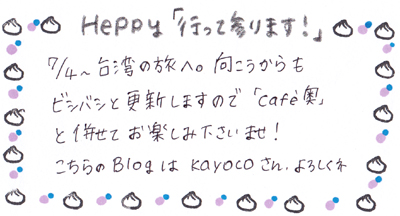 Heppy「行って参ります!」
7/4~台湾の旅へ。向こうからも
ビシバシと更新しますので「café奥」
と併せてお楽しみ下さいませ!
こちらのBlogはKAYOCOさん、よろしくネ